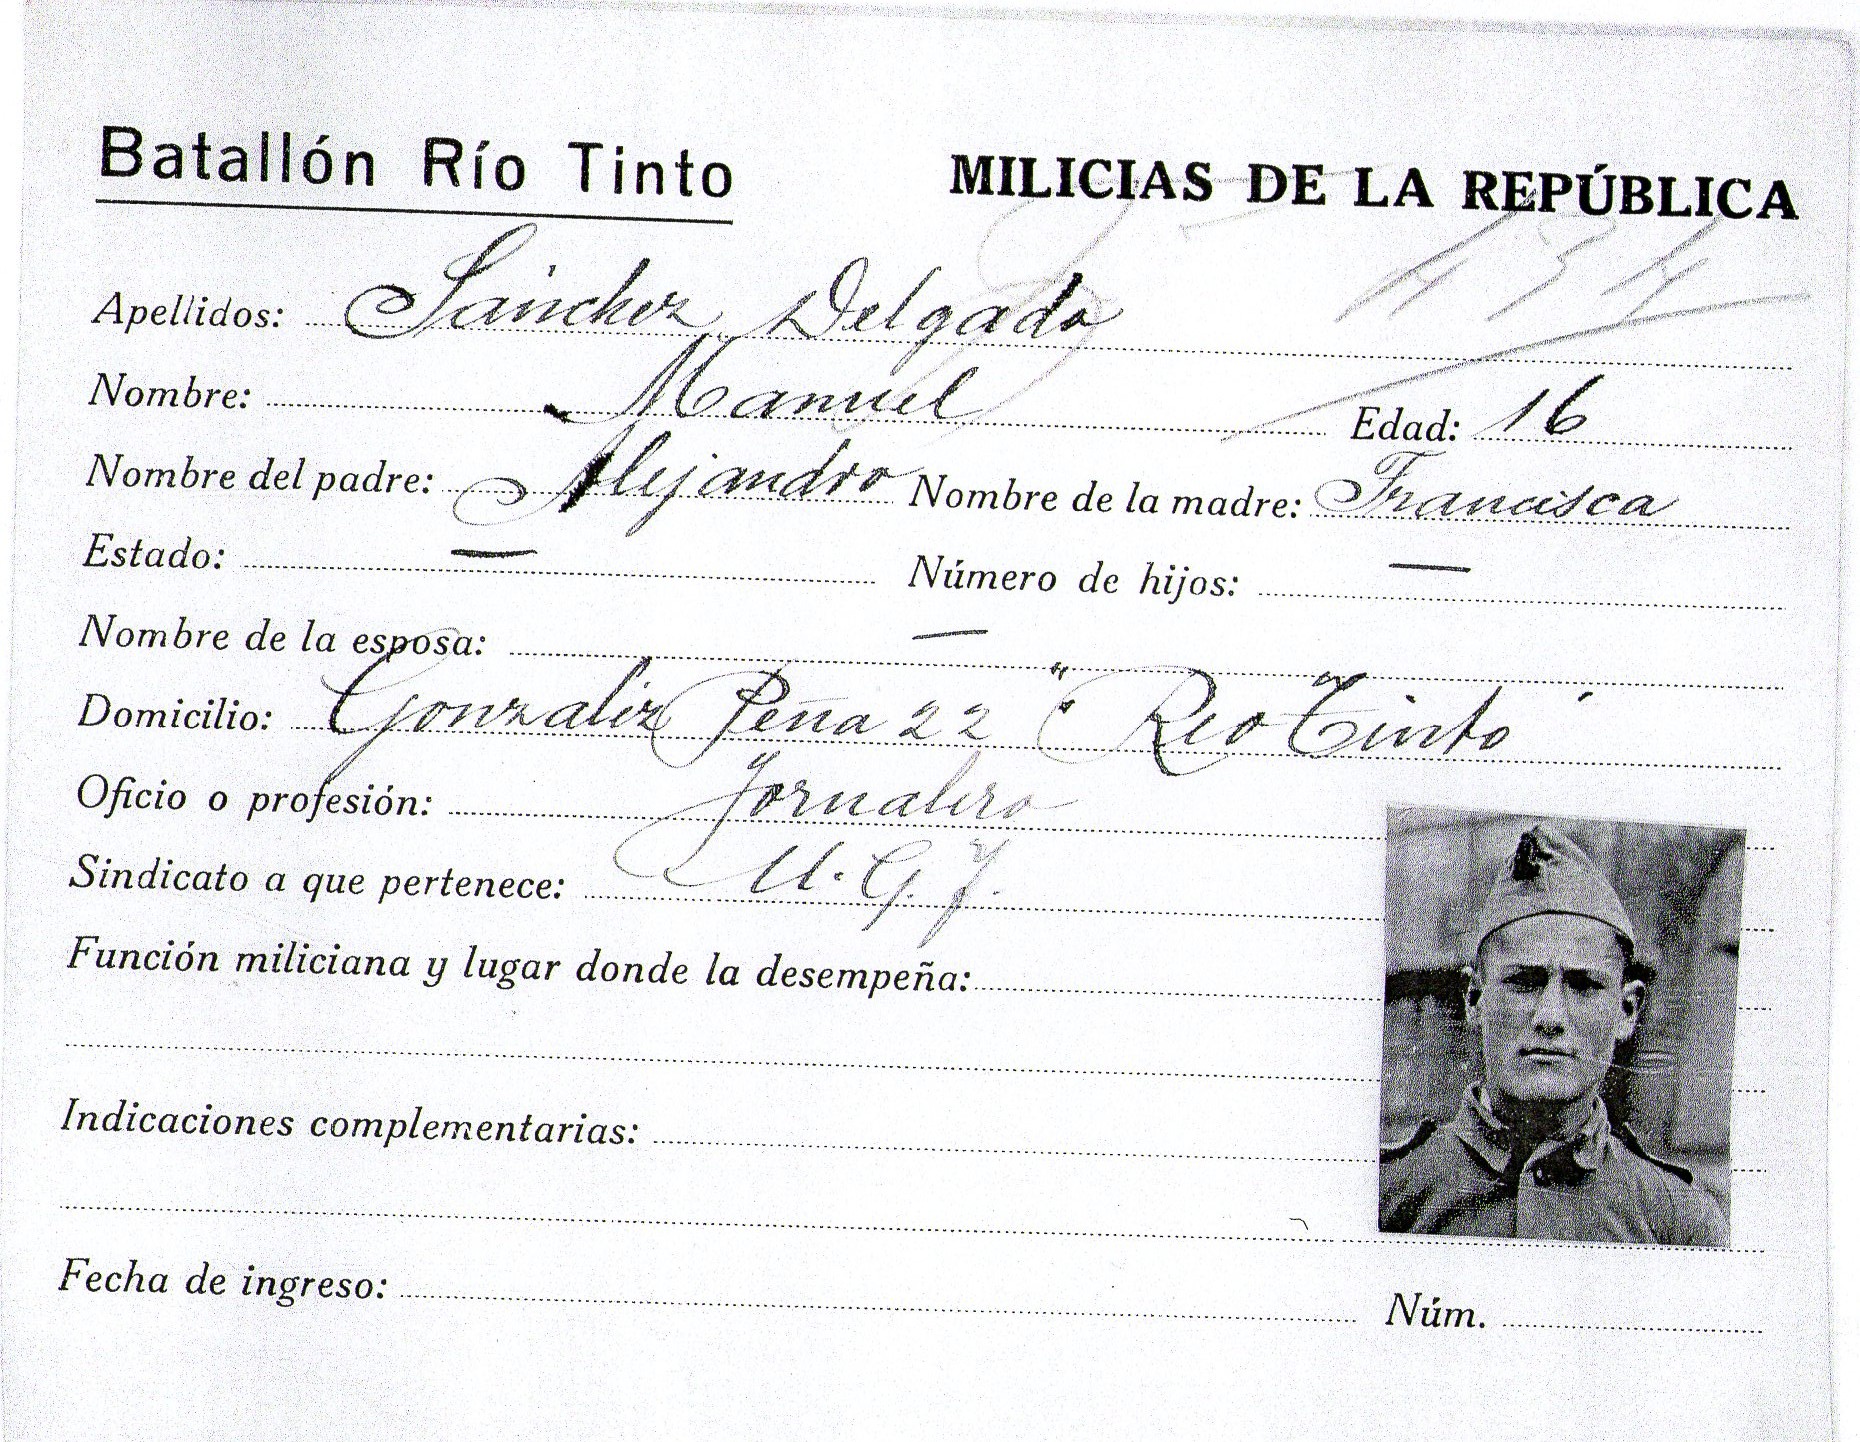 Batallón Río Tinto MILICIAS DE LA REPÚBLICA
Apellidos: Sánchez Delgado
Nombre: Manuel Edad: 16
Nombre del padre: Alejandro Nombre de la madre: Francisca
Estado: — Número de hijos: —
Nombre de la esposa: —
Domicilio: Gonzalez Peña 22 "Rio Tinto"
Oficio o profesión: Jornalero
Sindicato a que pertenece: U.G.T.
Función miliciana y lugar donde la desempeña:
Indicaciones complementarias:
Fecha de ingreso: Núm.